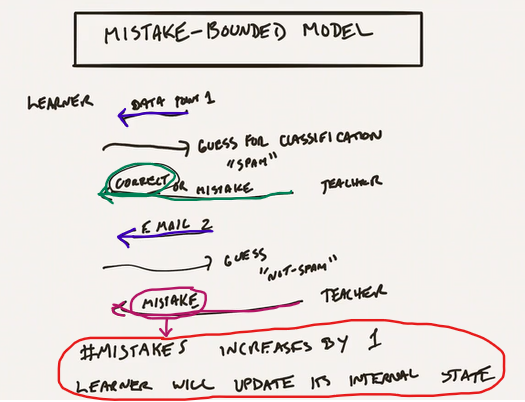 MISTAKE-BOUNDED MODEL
LEARNER DATA POINT 1
GUESS FOR CLASSIFICATION
"SPAM"
CORRECT OR MISTAKE TEACHER
EMAIL 2
GUESS
"NOT-SPAM"
MISTAKE TEACHER
#MISTAKES INCREASES BY 1
LEARNER WILL UPDATE ITS INTERNAL STATE